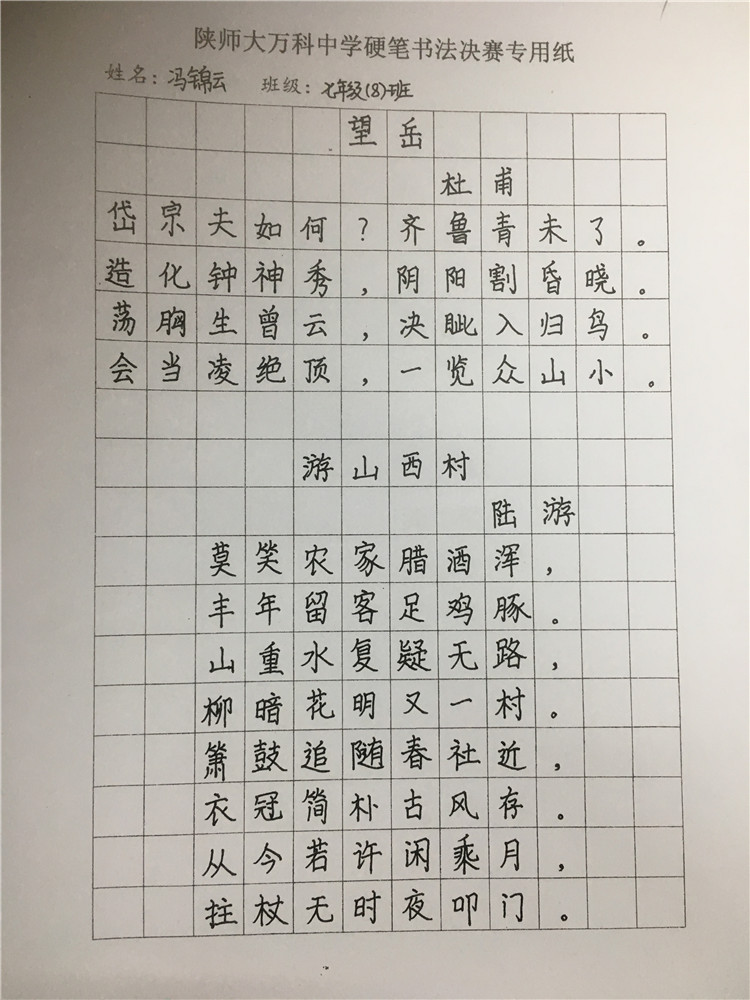 陕师大万科中学硬笔书法决赛专用纸
姓名：冯锦云 班级：七年级(8)班
望岳
杜甫
岱宗夫如何？齐鲁青未了。
造化钟神秀，阴阳割昏晓。
荡胸生曾云，决眦入归鸟。
会当凌绝顶，一览众山小。
游山西村
陆游
莫笑农家腊酒浑，
丰年留客足鸡豚。
山重水复疑无路，
柳暗花明又一村。
箫鼓追随春社近，
衣冠简朴古风存。
从今若许闲乘月，
拄杖无时夜叩门。